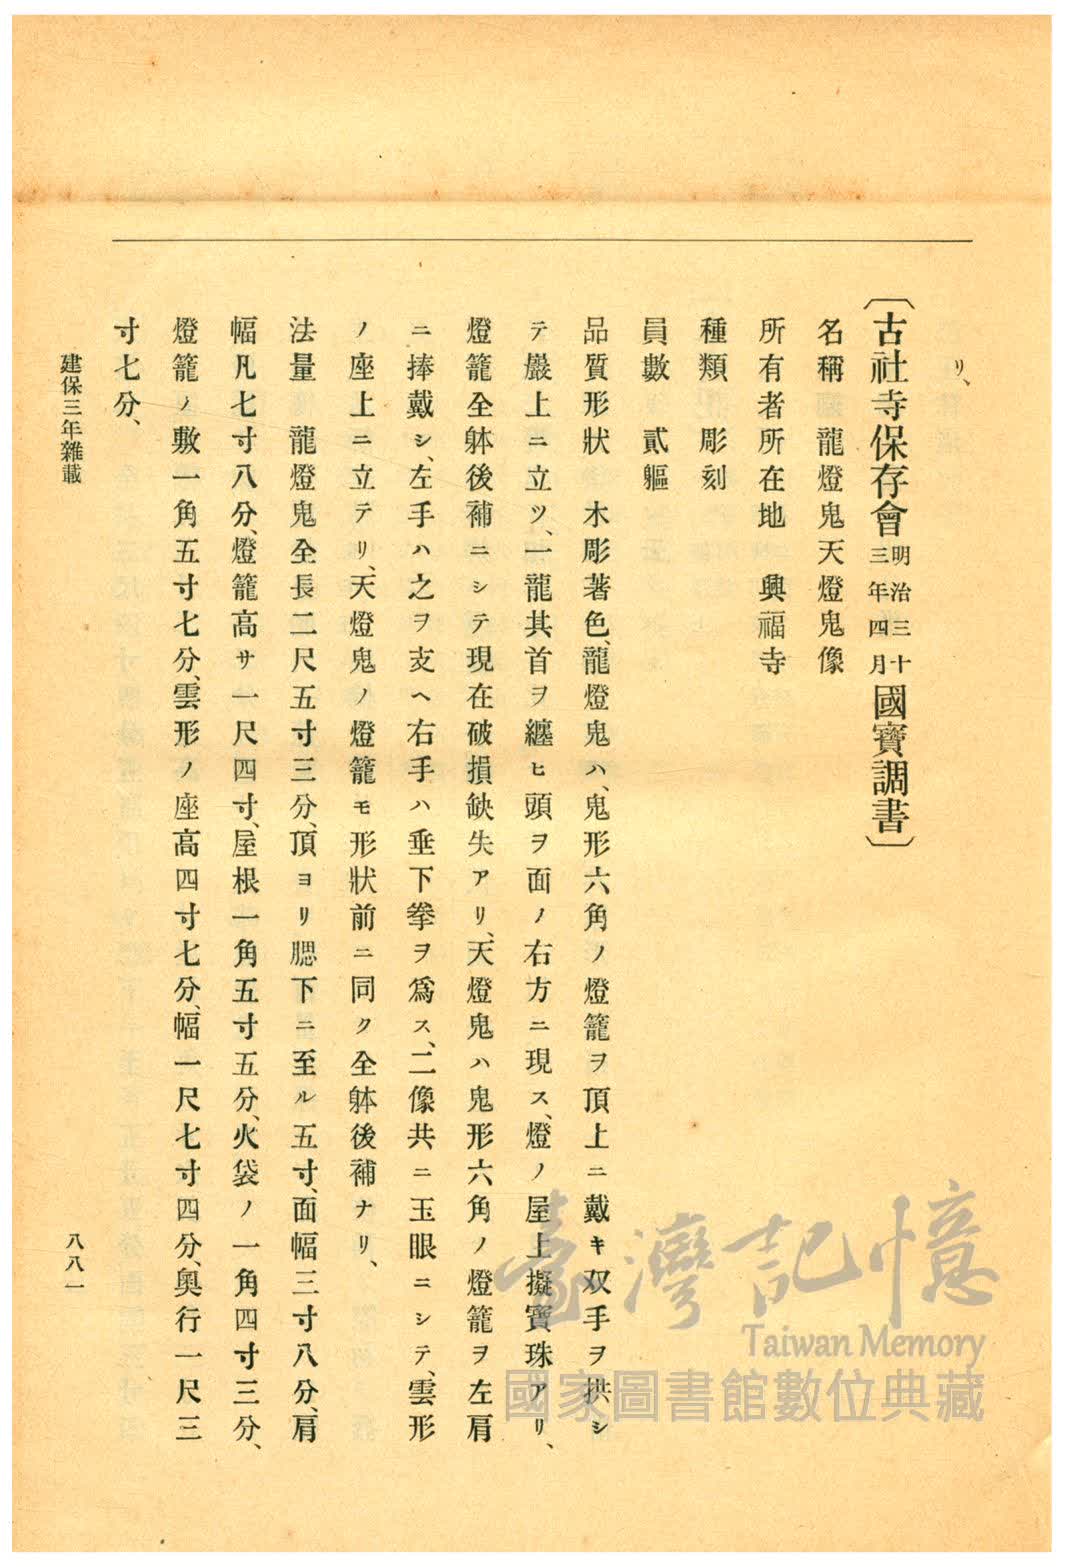 リ、
〔古社寺保存會明治三十三年四月國寶調書〕
名稱 龍燈鬼天燈鬼像
所有者所在地 興福寺
種類 彫刻
員數 貳軀
品質形狀 木彫著色、龍燈鬼ハ、鬼形六角ノ燈籠ヲ頂上ニ戴キ双手ヲ拱シ
テ巖上ニ立ツ、一龍其首ヲ纏ヒ頭ヲ面ノ右方ニ現ス、燈ノ屋上擬寶珠アリ、
燈籠全躰後補ニシテ現在破損缺失アリ、天燈鬼ハ鬼形六角ノ燈籠ヲ左肩
ニ捧戴シ、左手ハ之ヲ支ヘ右手ハ垂下拳ヲ爲ス、二像共ニ玉眼ニシテ、雲形
ノ座上ニ立テリ、天燈鬼ノ燈籠モ形狀前ニ同ク全躰後補ナリ、
法量 龍燈鬼全長二尺五寸三分、頂ヨリ腮下ニ至ル五寸、面幅三寸八分、肩
幅凡七寸八分、燈籠高サ一尺四寸、屋根一角五寸五分、火袋ノ一角四寸三分、
燈籠ノ敷一角五寸七分、雲形ノ座高四寸七分、幅一尺七寸四分、奧行一尺三
寸七分、
建保三年雜載
八八一
臺灣記憶
Taiwan Memory
國家圖書館數位典藏